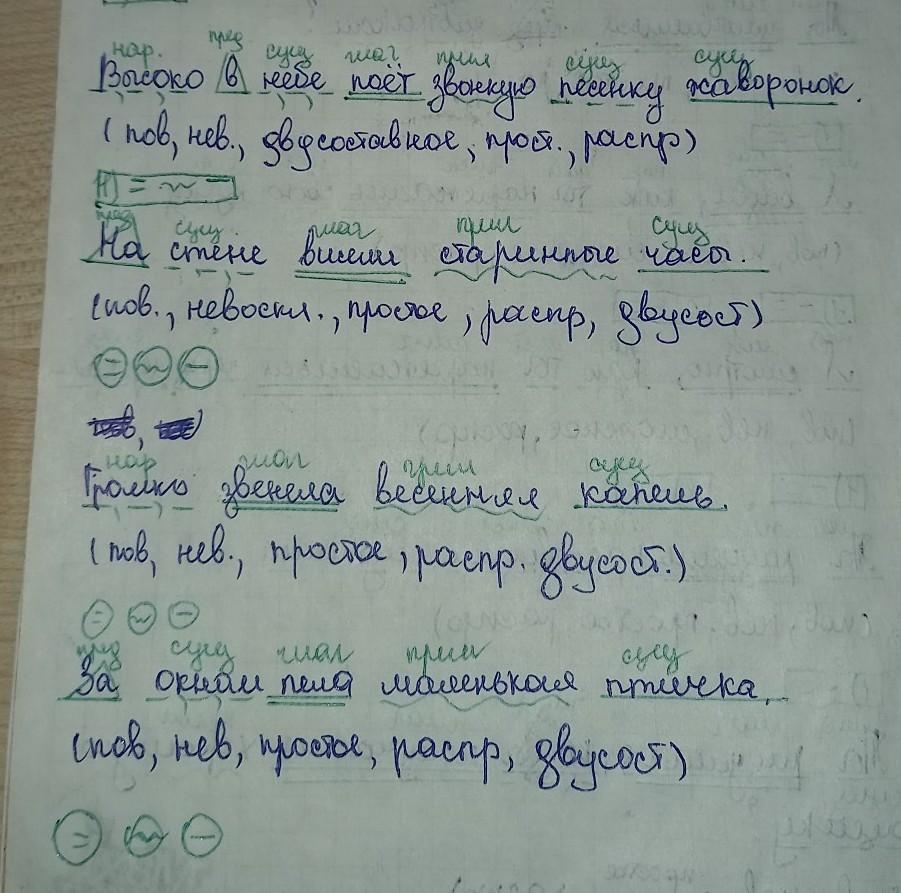 нар. пред сущ глаг. прил сущ сущ
Высоко в небе поёт звонкую песенку жаворонок.
(пов, нев., двусоставное, прост., распр)
пред сущ. глаг прил сущ
На стене висели старинные часы.
(пов., невоскл., простое, распр, двусост)
нар глаг прил сущ
Громко звенела весенняя капель.
(пов, нев., простое, распр. двусост.)
пред сущ глаг прил сущ
За окном пела маленькая птичка.
(пов, нев, простое, распр, двусост)